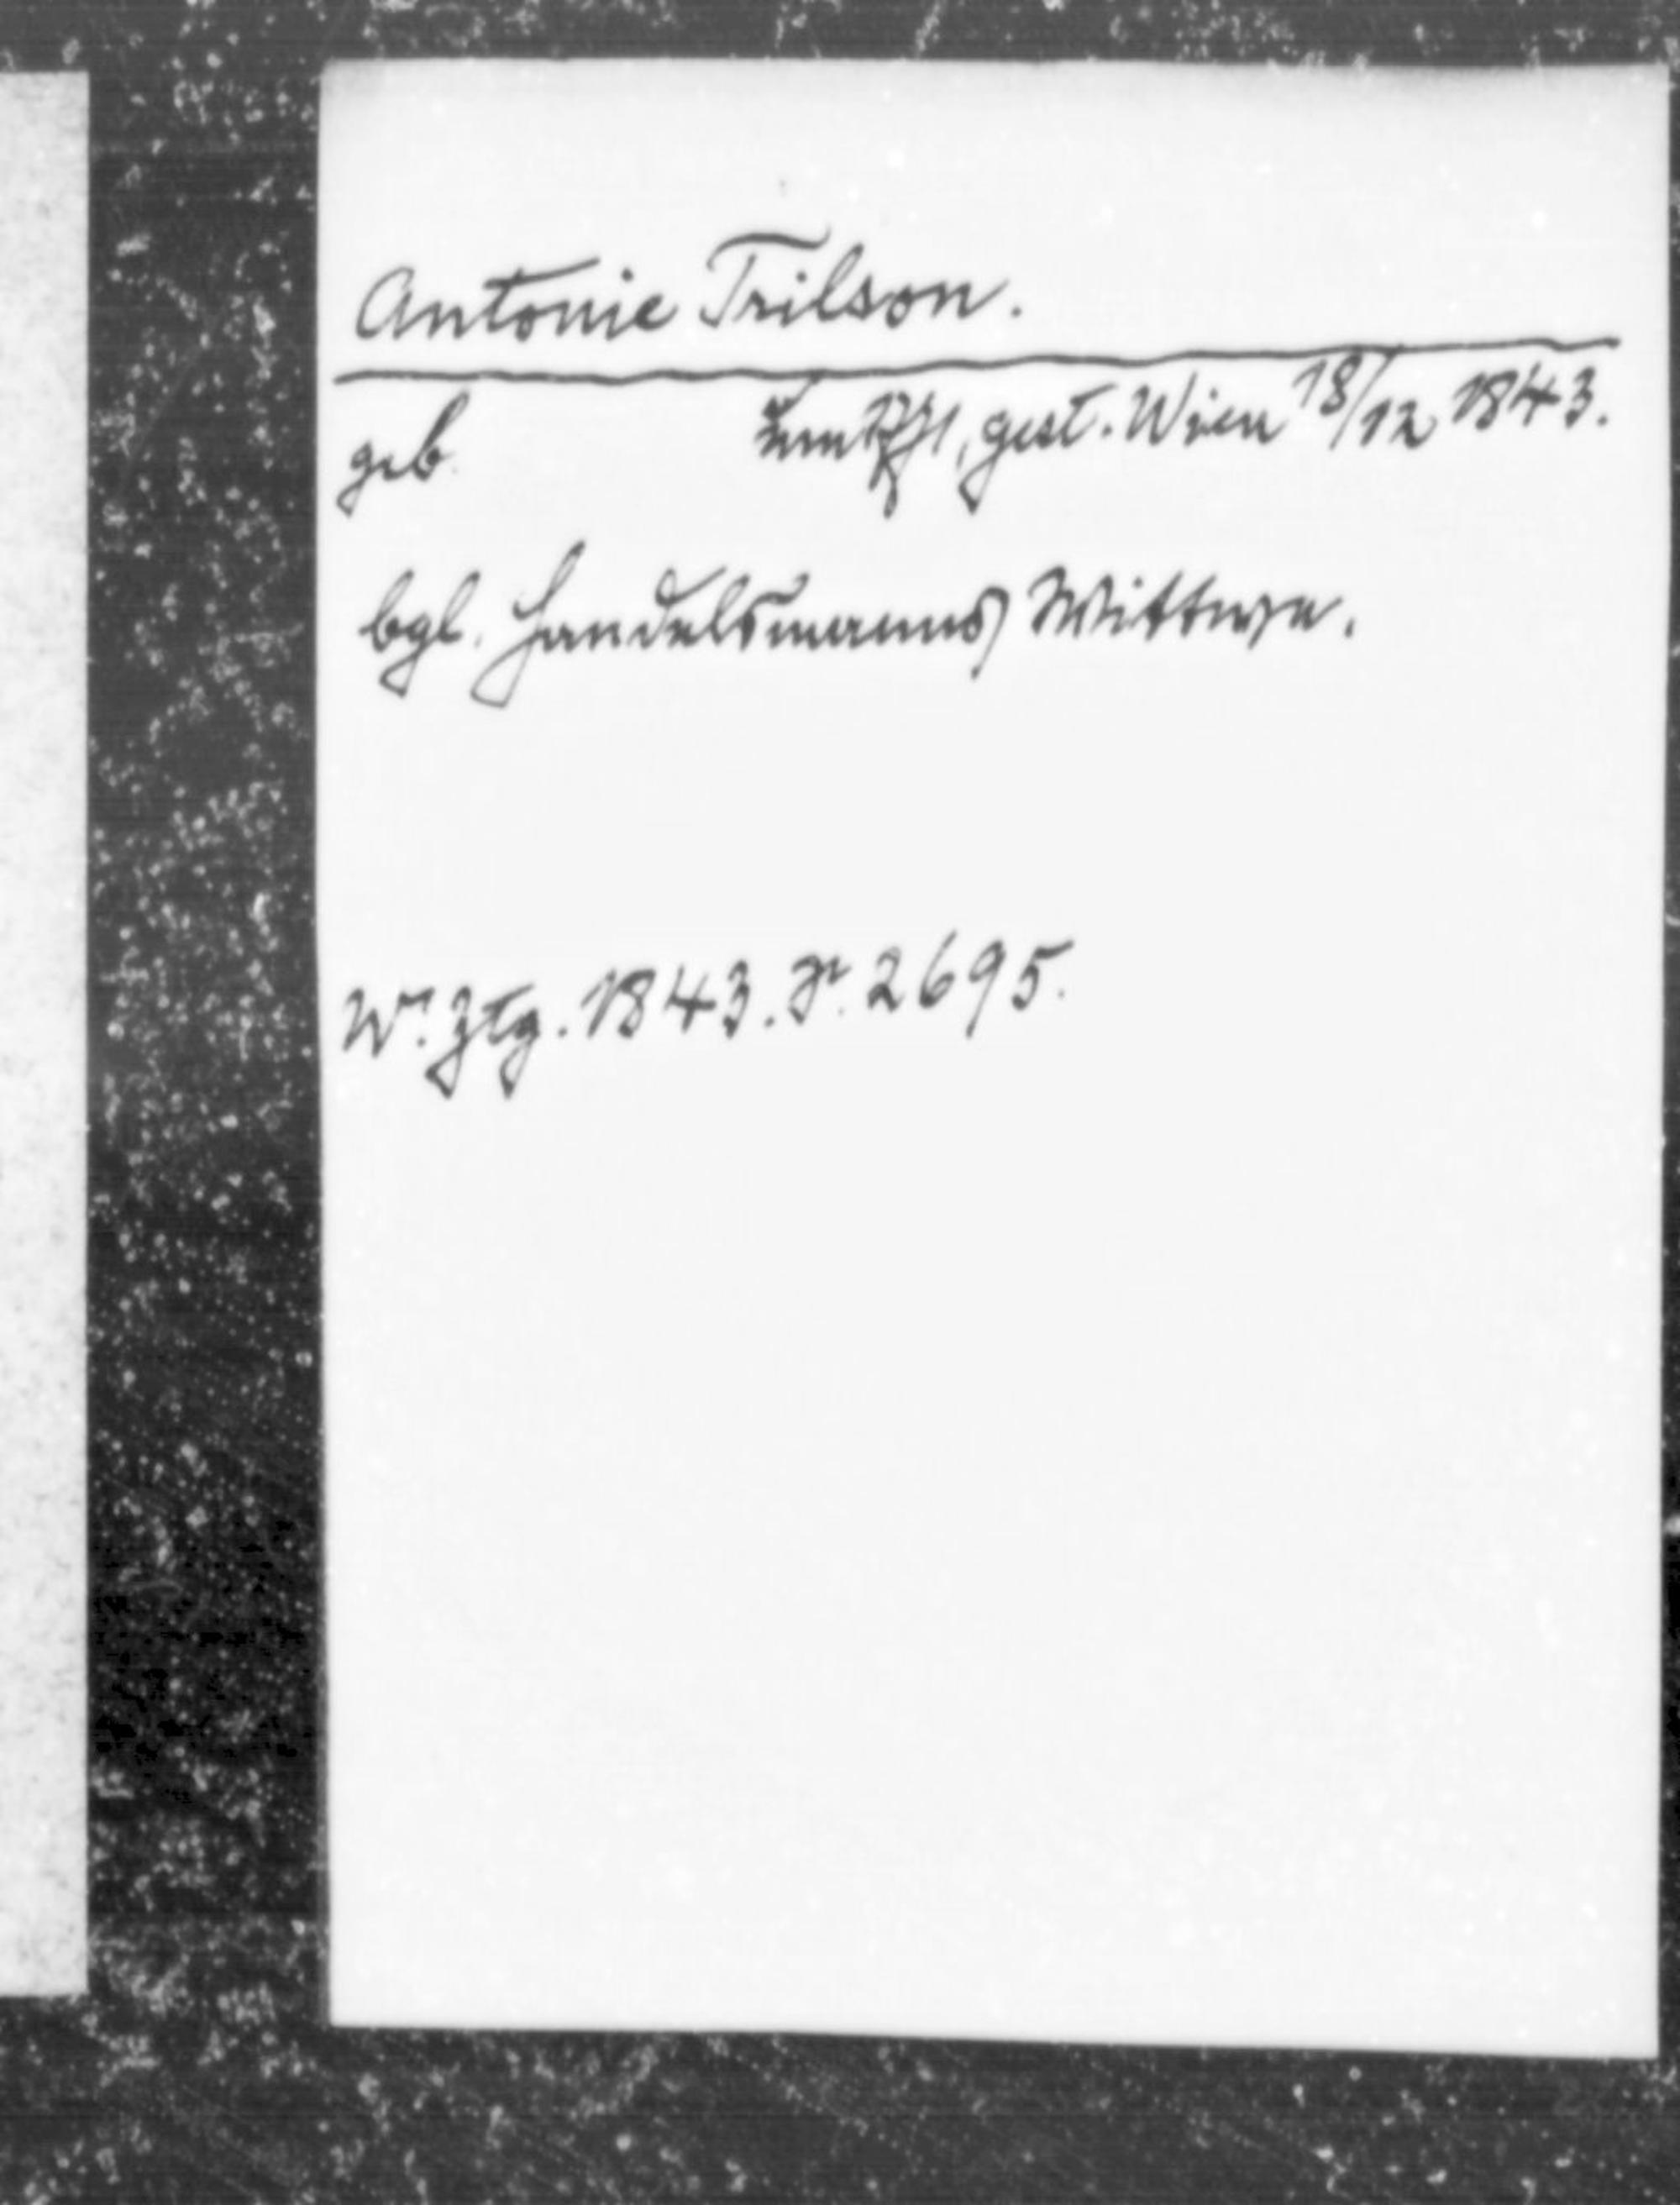 Antonie Trilson.
geb. um gest. Wien 18/12 1843.
bgl. Handelsmanns Wittwe.
Wr. Ztg. 1843. S. 2695.